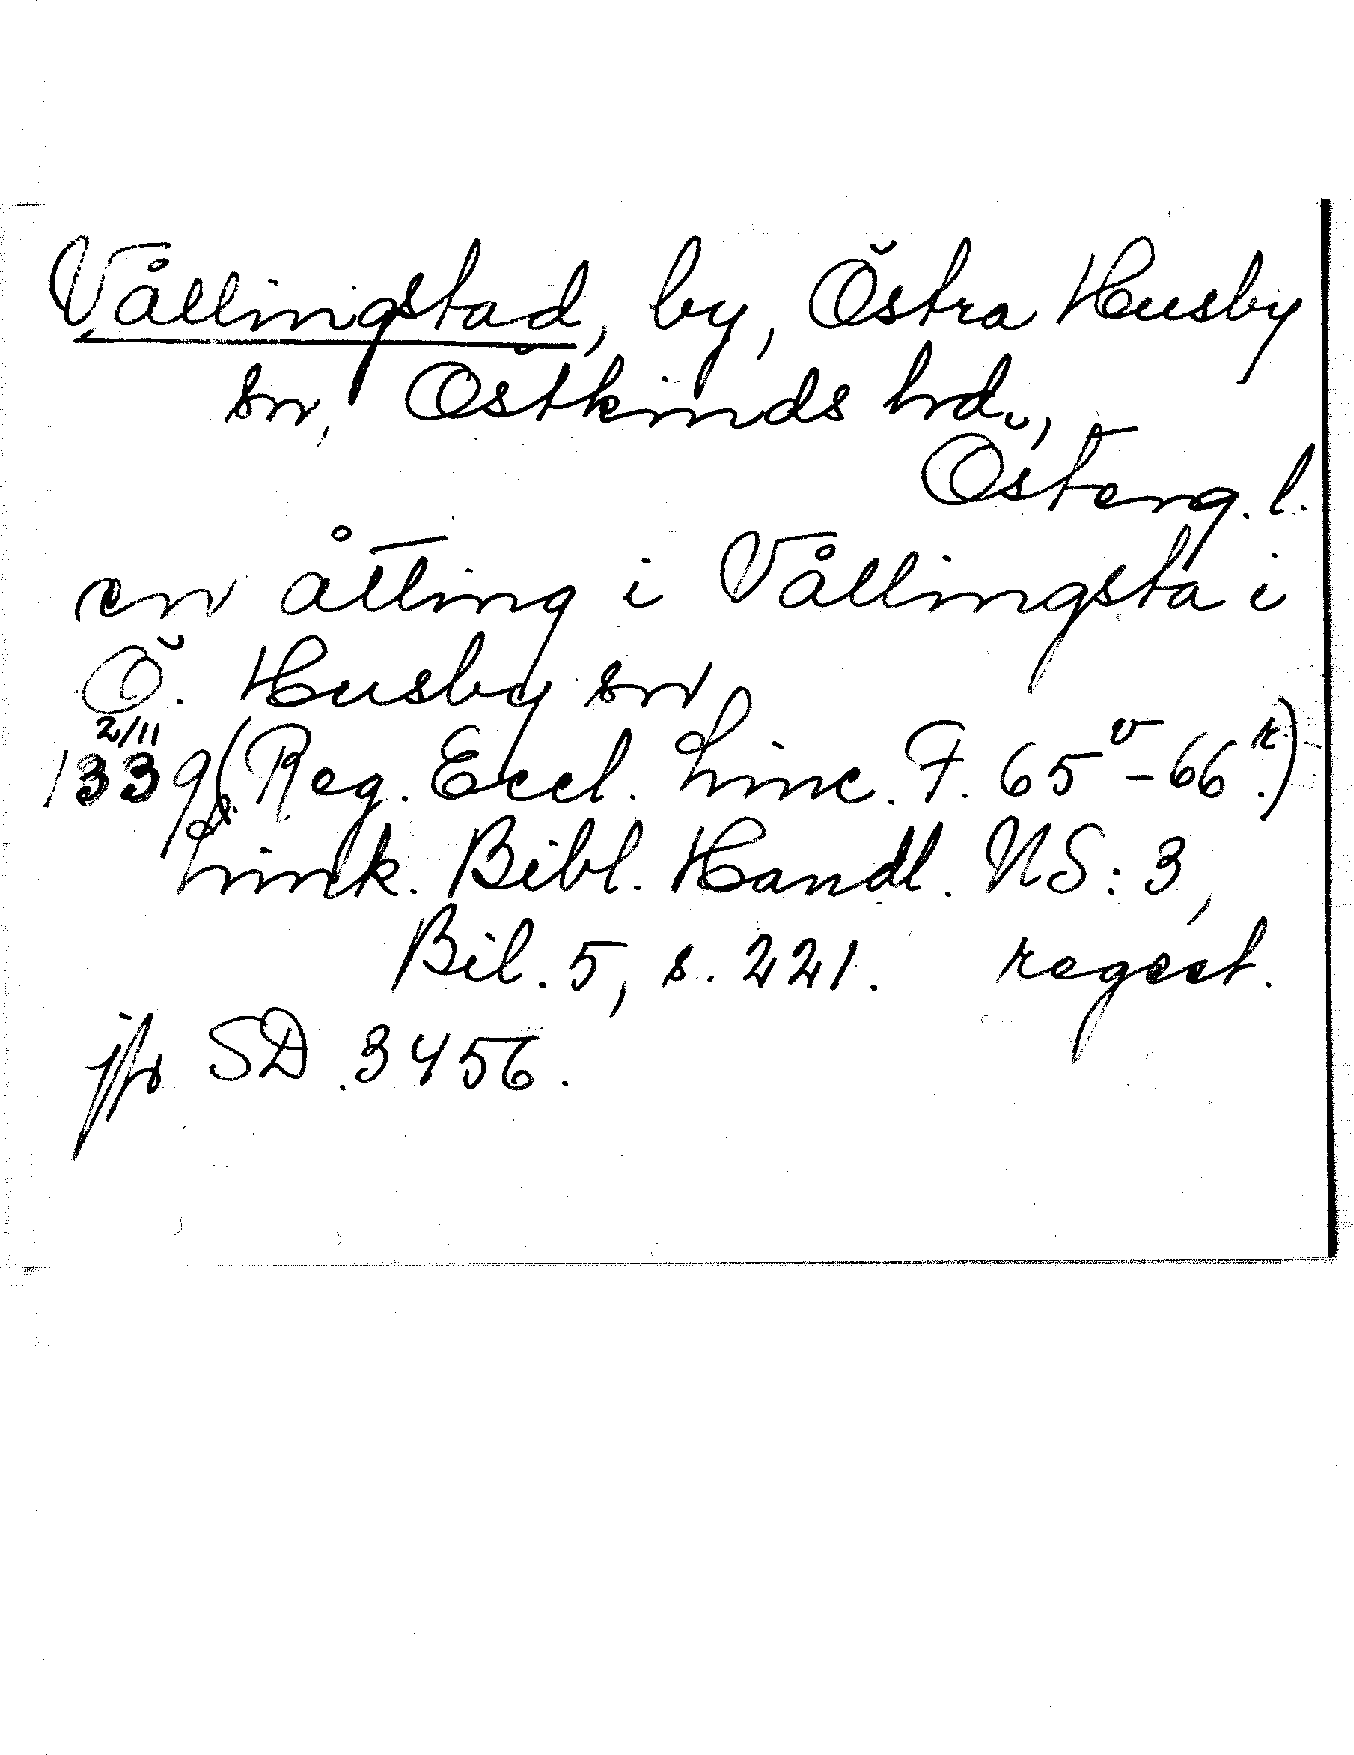 Vållingstad, by, Östra Husby
sn, Östkinds hrd,
Österg. l.
en åtting i Vållingsta i
Ö. Husby sn
2/11
1339 (Reg. Eccl. Linc. F. 65v-66r.)
Link. Bibl. Handl. NS: 3,
Bil. 5, s. 221. regest.
jfr SD 3456.